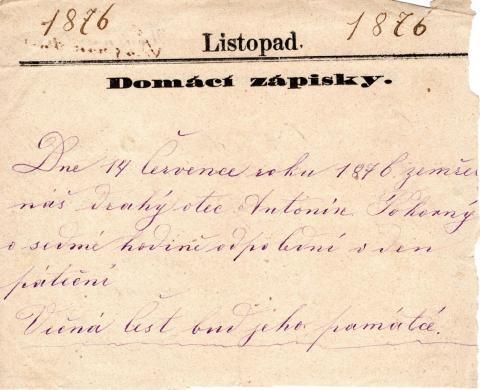 1876 1876
Listopad.
Domácí zápisky.
Dne 14 července roku 1876 zemřel
náš drahý otec Antonín Pokorný
o sedmé hodině odpolední v den
páteční
Věčná čest buď jeho památce.